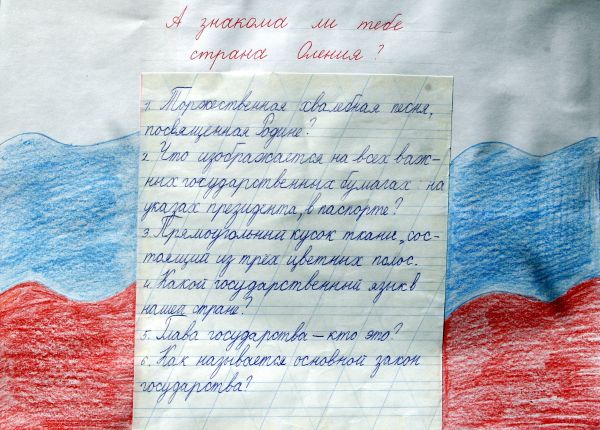 А знакома ли тебе
страна Оления?
1. Торжественная хвалебная песня,
посвященная Родине?
2. Что изображается на всех важ-
ных государственных бумагах на
указах президента, в паспорте?
3. Прямоугольный кусок ткани, сос-
тоящий из трёх цветных полос.
4. Какой государственный язык в
нашей стране?
5. Глава государства – кто это?
6. Как называется основной закон
государства?